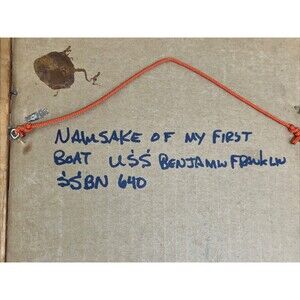 NAMSAKE OF MY FIRST
BOAT USS BENJAMIN FRANKLIN
SSBN 640